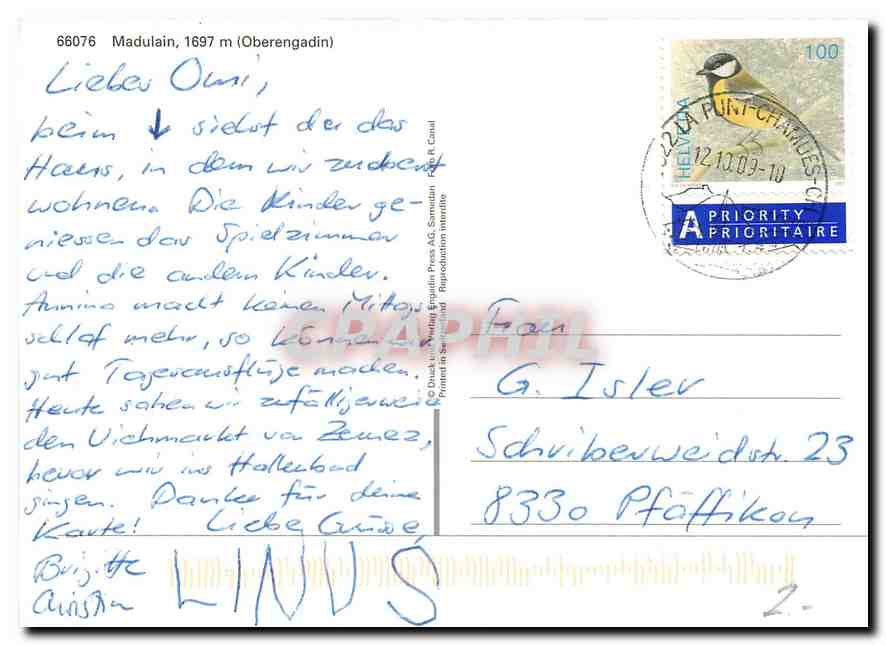 66076 Madulain, 1697 m (Oberengadin)
Lieber Omi,
beim ↓ siehst du das
Haus, in dem wir zuoberst
wohnen. Die Kinder ge-
niessen das Spielzimmer
und die andern Kinder.
Annina macht keinen Mittags-
schlaf mehr, so können wir
gut Tagesausflüge machen.
Heute sahen wir zufälligerweise
den Viehmarkt von Zernez,
bevor wir ins Hallenbad
gingen. Danke für deine
Karte! Liebe Grüsse,
Brigitte
Christian
LINUS
© Druck und Verlag Engadin Press AG, Samedan Foto R. Canal
Printed in Switzerland Reproduction interdite
HELVETIA
100
7522 LA PUNT-CHAMUES-CH
12.10.09-10
A PRIORITY
PRIORITAIRE
CPAPHIL
Frau
G. Isler
Schriberweidstr. 23
8330 Pfäffikon
2.-